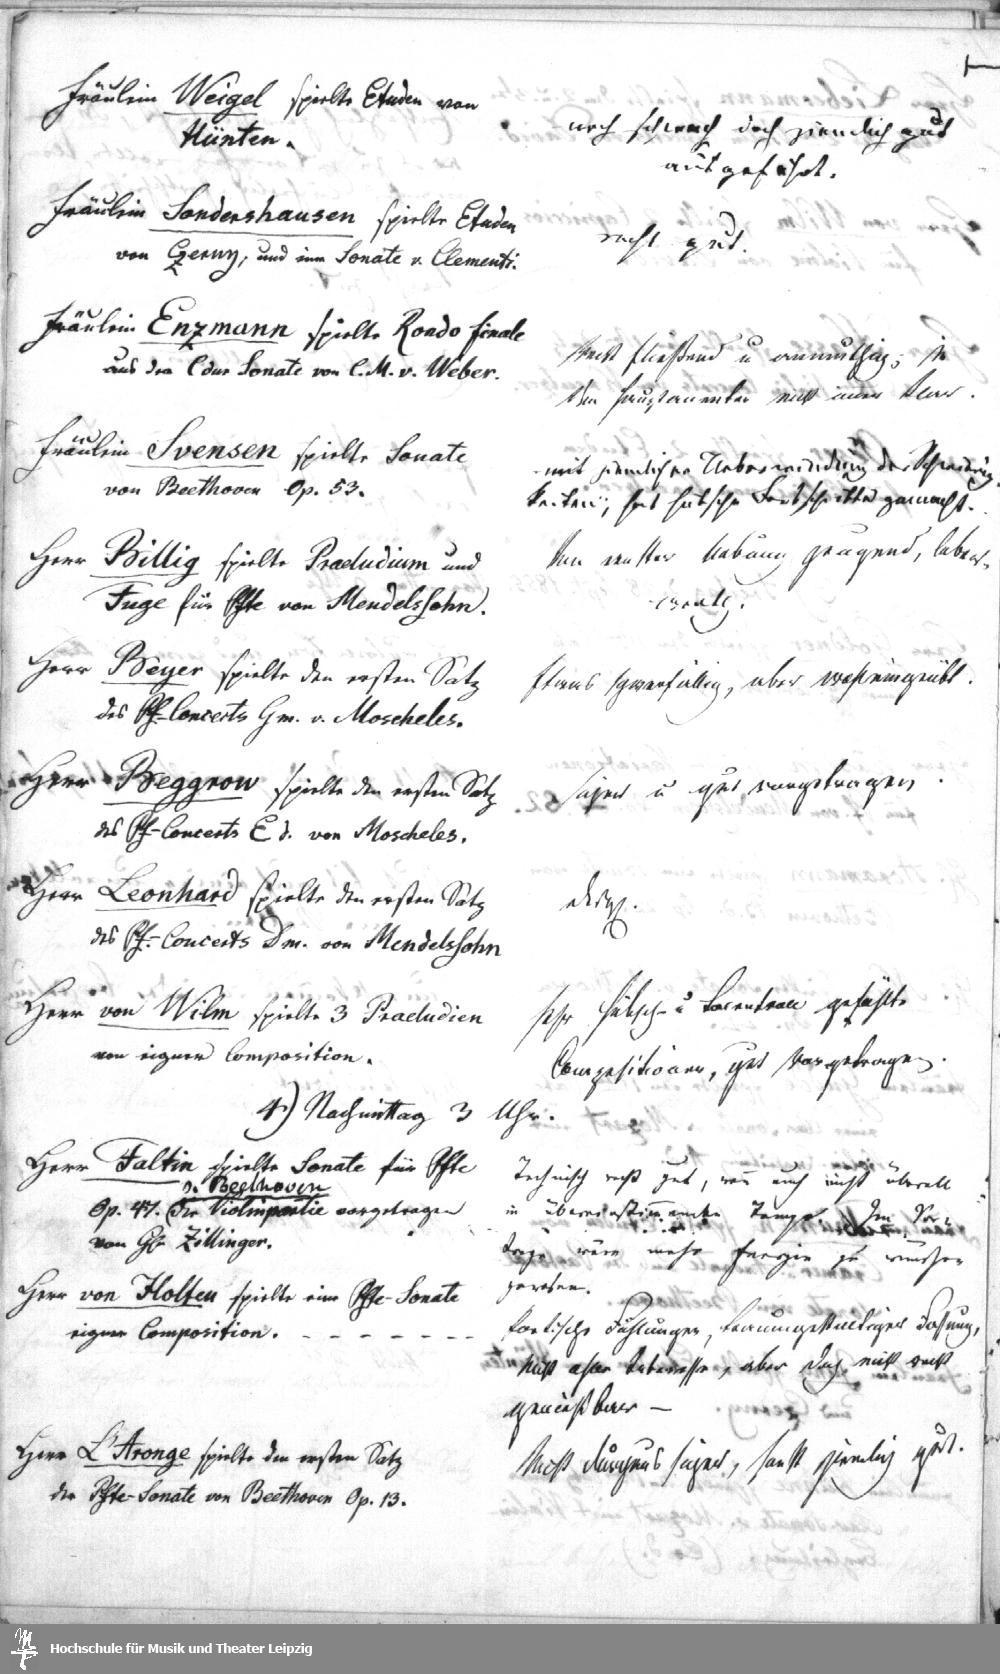 Fräulein Weigel spielte Etuden von
Hünten.
noch schwach doch ziemlich gut
ausgeführt.
Fräulein Sondershausen spielte Etuden
von Czerny, und eine Sonate v. Clementi.
recht gut.
Fräulein Enzmann spielte Rondo finale
aus der C dur Sonate von C. M. v. Weber.
fließend u anmuthig; in
den nicht immer klar.
Fräulein Svensen spielte Sonate
von Beethoven Op. 53.
mit ziemlicher Ueberwindung der Schwierig-
keiten, hat hübsche Fortschritte gemacht.
Herr Billig spielte Praeludium und
Fuge für Pfte von Mendelssohn.
Von ernster Uebung zeugend, lobens-
werth.
Herr Beyer spielte den ersten Satz
des Pf-Concerts Gm. v. Moscheles.
Etwas schwerfällig, aber wohl eingeübt.
Herr Beggrow spielte den ersten Satz
des Pf-Concerts E d. von Moscheles.
sicher u gut vorgetragen.
Herr Leonhard spielte den ersten Satz
des Pf.-Concerts Dm. von Mendelssohn
desgl.
Herr von Wilm spielte 3 Praeludien
von eigner Composition.
sehr hübsch u gefühlte
Compositionen, gut vorgetragen.
4) Nachmittag 3 Uhr.
Herr Faltin spielte Sonate für Pfte
v. Beethoven
Op. 47. Die Violinpartie vorgetragen
von Hr Zillinger.
Technisch recht gut, wenn auch nicht überall
in übereinstimmenden Tempo. Im Vor-
trage wäre mehr Energie zu wünschen
gewesen.
Herr von Holten spielte eine Pfte-Sonate
eigner Composition. - - - - - - -
Poetische Fühlungen, Fassung,
nicht ohne Interesse, aber doch nicht recht
genießbar —
Herr L'Aronge spielte den ersten Satz
der Pfte-Sonate von Beethoven Op. 13.
Nicht durchaus sicher, sonst ziemlich gut.
Hochschule für Musik und Theater Leipzig